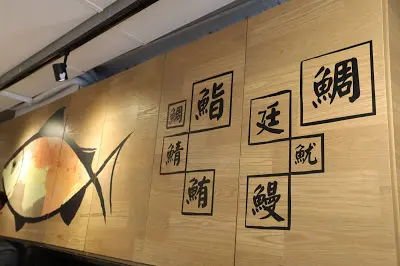 鯛
鮨
鯖
鮪
廷
鯛
魷
鰻